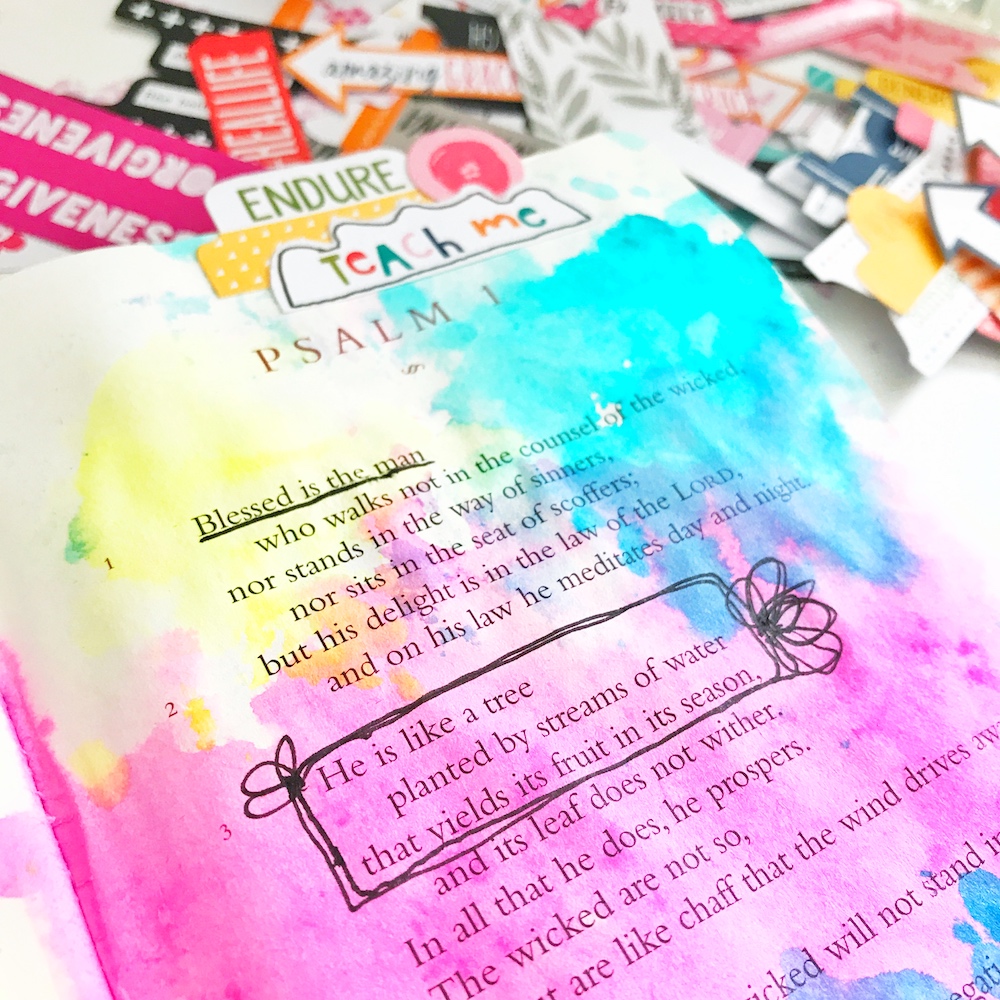 amazing
REALLIFE
FORGIVENESS
FORGIVENESS
ENDURE
TEACH me
PSALM 1
Blessed is the man
who walks not in the counsel of the wicked,
1
nor stands in the way of sinners,
nor sits in the seat of scoffers;
but his delight is in the law of the LORD,
and on his law he meditates day and night.
2
He is like a tree
planted by streams of water
3
that yields its fruit in its season,
and its leaf does not wither.
In all that he does, he prospers.
The wicked are not so,
are like chaff that the wind drives
wicked will not stand